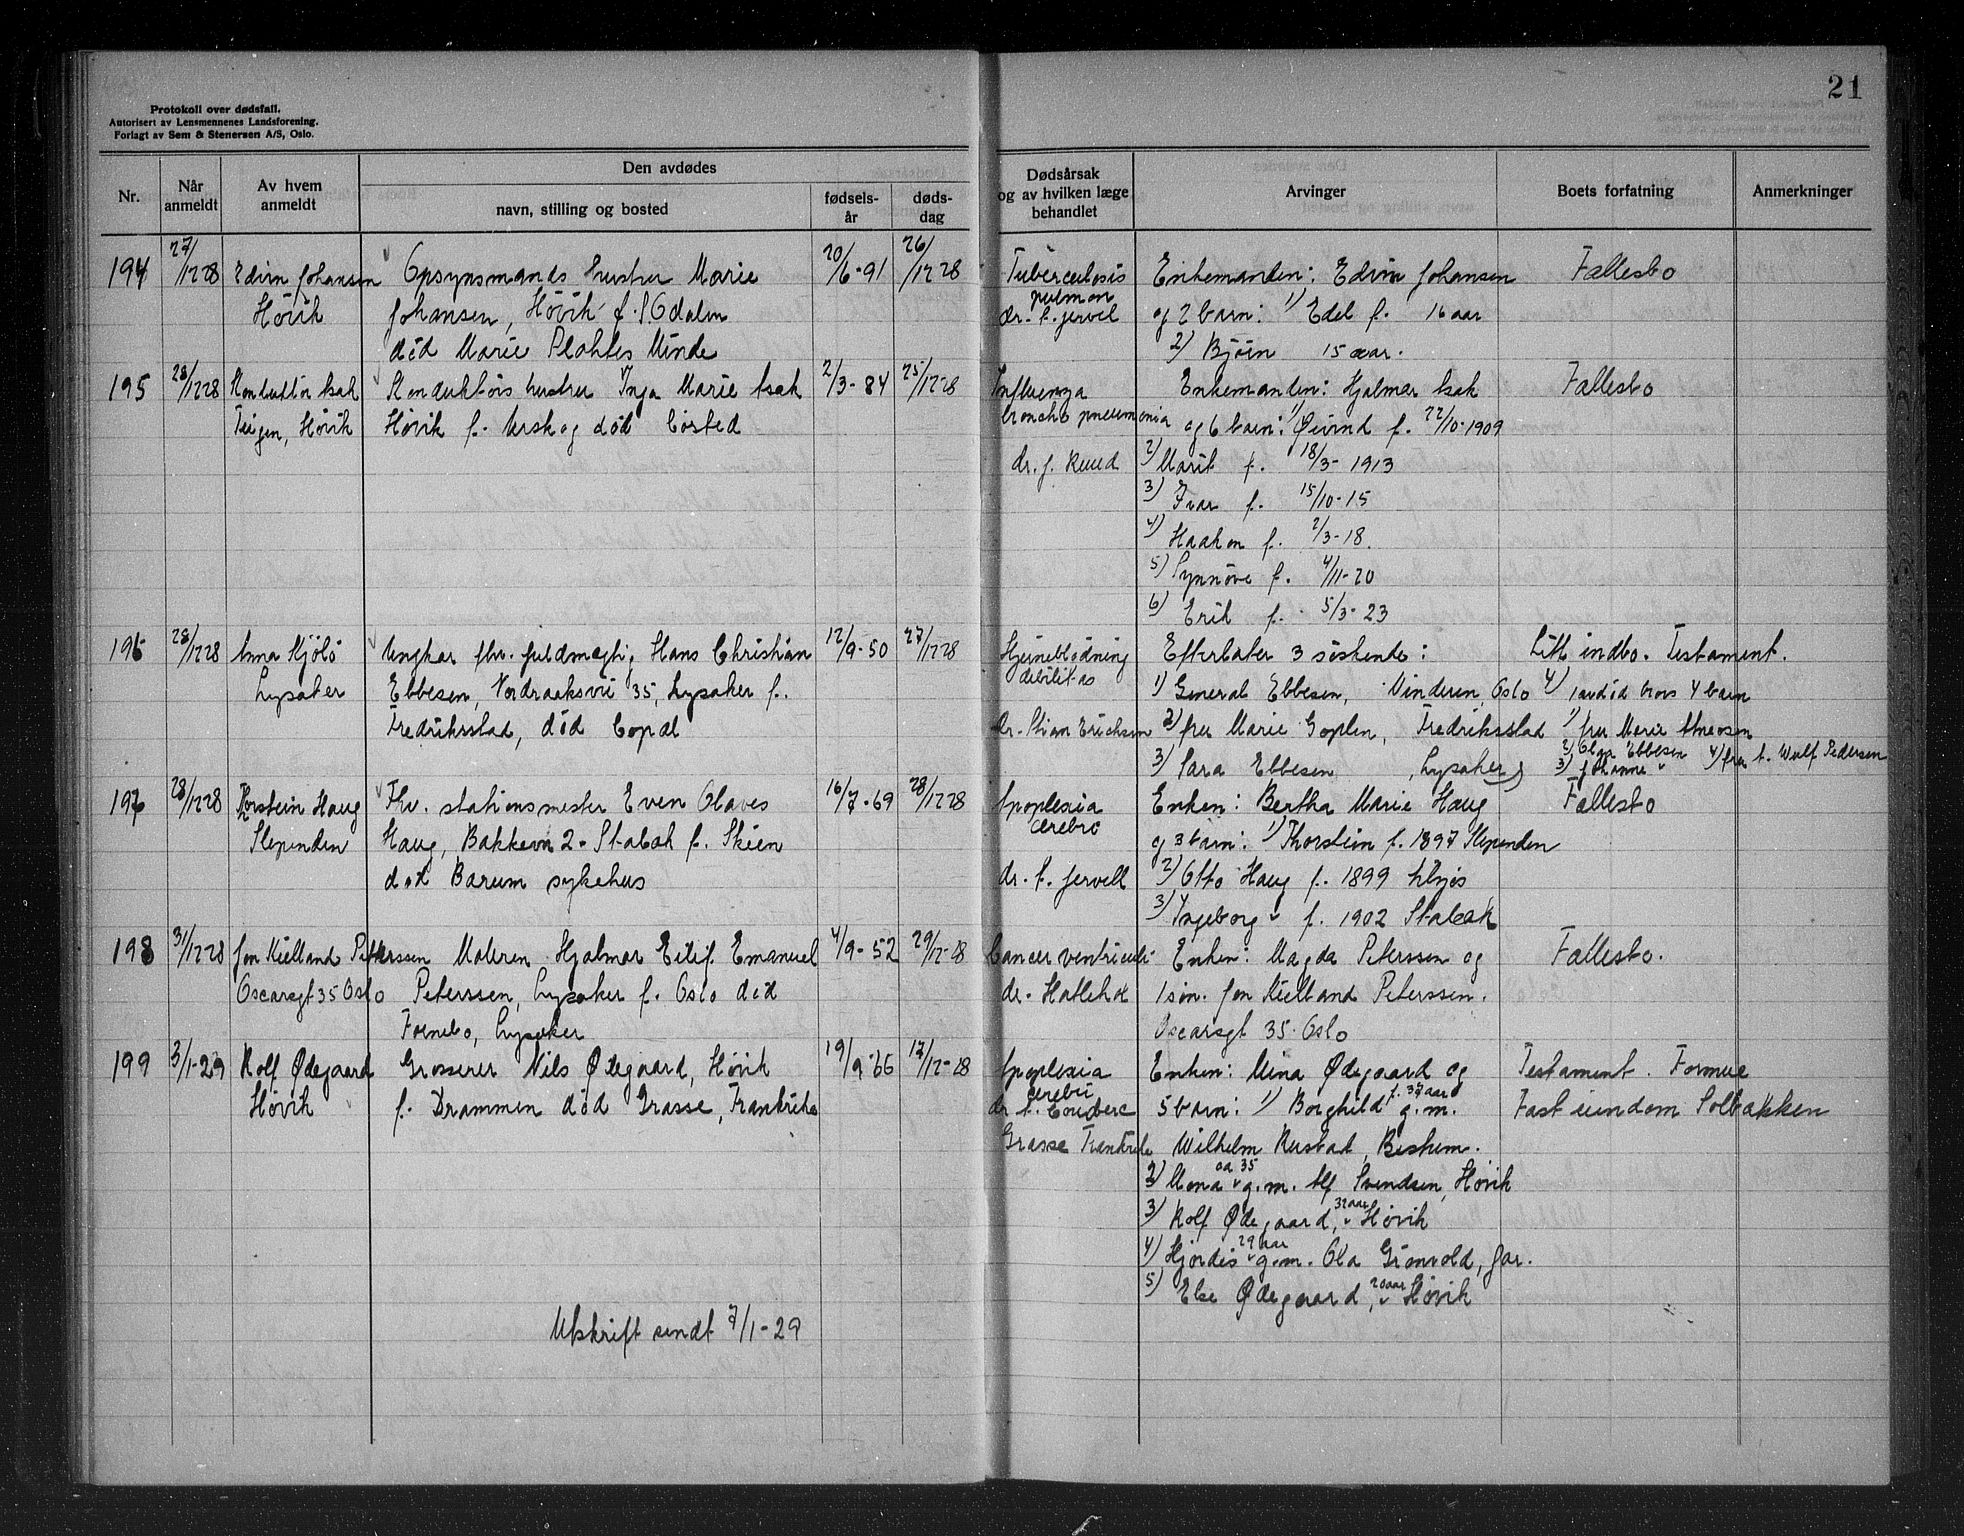 21
Protokoll over dødsfall.
Autorisert av Lensmennenes Landsforening.
Forlagt av Sem & Stenersen A/S, Oslo.
Nr.
Når anmeldt
Av hvem anmeldt
Den avdødes
navn, stilling og bosted
fødsels-år
døds-dag
Dødsårsak og av hvilken læge behandlet
Arvinger
Boets forfatning
Anmerkninger
194 27/1228 Edvin Johansen Opsynsmands hustru Marie 20/6-91 26/1228 Tuberculosis Enkemanden: Edvin Johansen Fællesbo
Høvik Johansen, Høvik f. S. Odalen pulmon og 2 barn: 1) Edel f. 16 aar
død Marie Plahtes Minde dr. Jervel 2) Bjørn 15 aar.
195 28/1228 Konduktør Isak Konduktørs hustru Inga Marie Isak 2/3-84 25/1228 Influenza Enkemanden: Hjalmar Isak Fællesbo
Høvik Høvik f. Urskog død Bosted broncho pneumonia og 6 barn: 1) Øivind f. 22/10-1909
dr. J. Ruud 2) Marit f. 18/3-1913
3) Ivar f. 15/10-15
4) Haakon f. 2/3-18.
5) Synnöve f. 4/11-20
6) Erik f. 5/3-23
196 28/1228 Anna Kjölö Ungkar fhv. fuldmægtig Hans Christian 12/9-50 27/1228 Hjerneblödning Efterlater 3 söskende: Litt indbo. Testament.
Lysaker Ebbesen, Nordraaksvei 35, Lysaker f. debilitas 1) General Ebbesen, Vinderen, Oslo 4) 1 avdød brors 4 barn
Fredriksstad, död Bopæl dr. Stian Erichsen 2) fru Marie Goplen, Fredriksstad 1) fru Marie
3) Sara Ebbesen, Lysaker 2) Olga Ebbesen 3) Johanne " 4) fru Wulf Pedersen
197 28/1228 Thorstein Haug Fhv. stationsmester Even Olaves 16/7-69 28/1228 Apoplexia Enken: Bertha Marie Haug Fællesbo
Slependen Haug, Bakkevei 2. Stabæk f. Skien cerebri og 3 barn: 1) Thorstein f. 1897 Slependen
død Bærum sykehus dr. Jervell 2) Otto Haug f. 1899
3) Ingeborg " f. 1902 Stabæk
198 31/1228 Jon Kielland Peterssen Maleren Hjalmar Eilif Emanuel 4/9-52 29/12-28 Cancer ventriculi Enken: Magda Peterssen og Fællesbo.
Oscarsgt 35 Oslo Peterssen, Lysaker f. Oslo död dr. 1 søn. Jon Kielland Peterssen.
Fornebo, Lysaker Oscarsgt 35. Oslo
199 3/1-29 Rolf Ødegaard Grosserer Nils Ødegaard, Høvik 19/9-66 17/12-28 Apoplexia Enken: Mina Ødegaard og Testament. Formue
Høvik f. Drammen død Grasse, Frankrike cerebri 5 barn: 1) Borghild f. 37 aar g.m. Fast eiendom Solbakken
Grasse Frankrike Wilhelm Rustad, Bestum.
2) Mona ca 35 " g.m. Alf Svendsen, Høvik
3) Rolf Ødegaard, 32 aar Høvik
4) Hjördis 29 aar " g.m. Ola Grönvold, Jar.
5) Else Ødegaard, 20 aar Høvik
Utskrift sendt 7/1-29